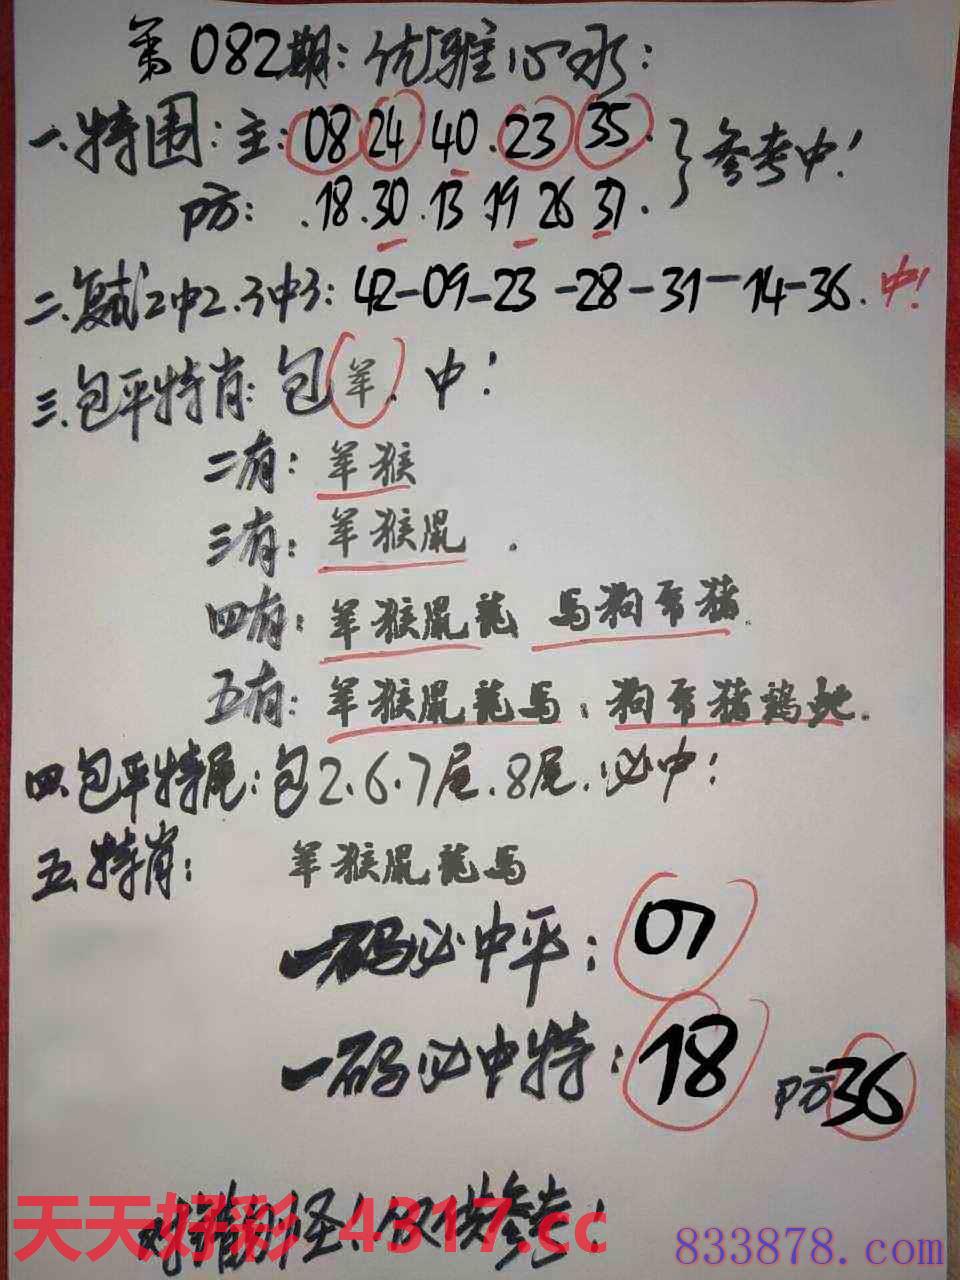 第082期:优雅心水:
一.特围:主:08 24.40.23 35.}参考中!
防:.18.30.13 19 26 31.
二.复试2中2.3中3:42-09-23-28-31-14-36.中!
三.包平特肖:包羊.中!
二有:羊猴
三有:羊猴鼠.
四有:羊猴鼠龍 馬狗兔猪.
五有:羊猴鼠龍馬:狗兔猪鷄蛇.
四.包平特尾:包2.6.7尾.8尾.必中!
五.特肖:羊猴鼠龍馬
一码必中平:07
一码必中特:18 防36
对错勿怪!仅供参考!
天天好彩 4317.cc
833878.com